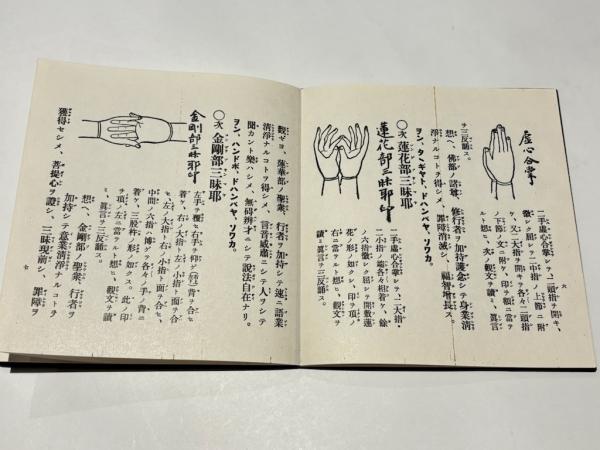 虚心合掌
二手虚心合掌シテ、二頭指ヲ開キ、
微シ屈シテ二中指ノ上節ニ附
ケ、又二大指ヲ開キ各々二頭指
ノ下節ノ文ニ附ケ、印ヲ額ニ當ヲ
ルト想ヒ、次ノ觀文ヲ讀ミ眞言
ヲ三反誦ス。
想ヘ、佛部ノ諸尊、修行者ヲ加持護念シテ身業清
淨ナルコトヲ得シメ、罪障消滅シ、福智增長ス。
ヲン、タタギャト、ドハンベヤ、ソワカ。
〇次蓮花部三昧耶
蓮花部三昧耶印
二手虚心合掌シテ、二大指・
二小指ノ端各々相着ケ、餘
ノ六指微シク屈シテ開敷蓮
花ノ形ノ如クシ、印ヲ頂ノ
右ニ當テルト想ヒ、觀文ヲ
讀ミ眞言ヲ三反誦ス。
觀ゼヨ、蓮華部ノ聖衆、行者ヲ加持シテ速ニ語業
清淨ナルコトヲ得シメ、言音威肅ニシテ人ヲシテ
聞カント樂ハシメ、無碍辨才ニシテ說法自在ナリ。
ヲン、ハンドボ、ドハンベヤ、ソワカ。
〇次金剛部三昧耶
金剛部三昧耶印
左手ヲ覆セ右手ヲ仰ゲ(背)背ヲ合セ
セ、左ノ大指ト右ノ小指ト面ヲ合セ
着ケ、右ノ大指ト左ノ小指ト面ヲ合セ、
中間ノ六指ハ博ゲテ各々ノ手ノ背ニ
着ケ、三股杵ノ形ノ如クス。此ノ印
ヲ頂ノ左ニ當テルト想ヒ、觀文ヲ讀
ミ、眞言ヲ三反誦ス。
想ヘ、金剛部ノ聖衆、行者ヲ
加持シテ意業清淨ナルコトヲ
獲得セシメ、菩提心ヲ證シ、三昧現前シ、罪障ヲ